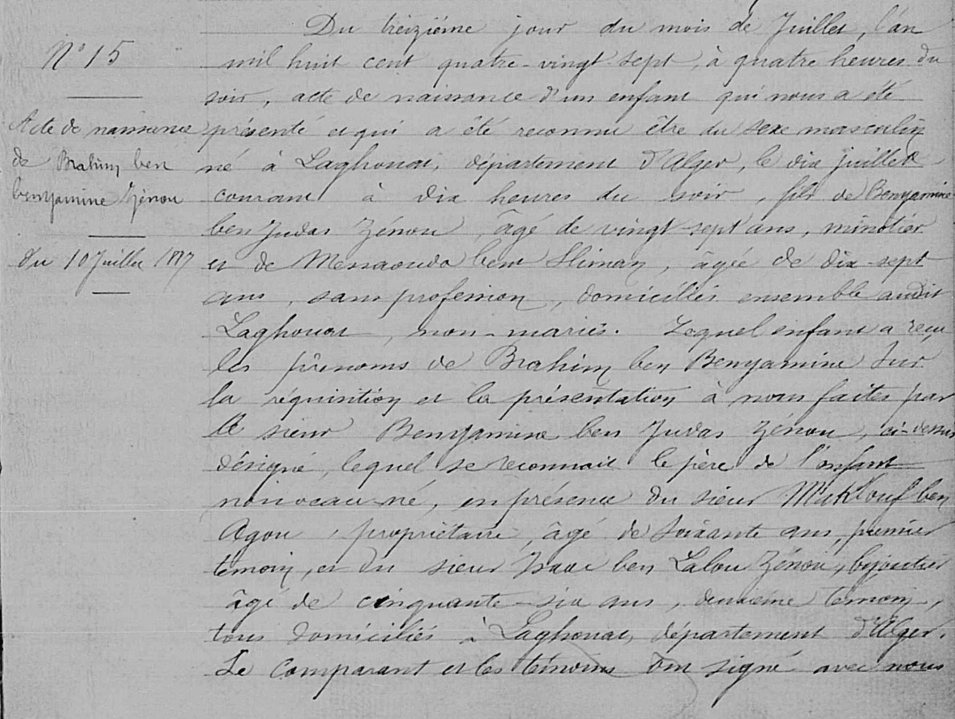 N° 15
Acte de naissance
de Brahim ben
benyamine Zénou
Du 10 Juillet 1887
Du treizième jour du mois de Juillet, l'an
mil huit cent quatre-vingt sept, à quatre heures du
soir, acte de naissance d'un enfant qui nous a été
présenté et qui a été reconnu être du sexe masculin
né à Laghouat, département d'Alger, le dix juillet
courant à dix heures du soir, fils de Benyamine
ben Judas Zénou, âgé de vingt-sept ans, minotier
et de Messaouda bent Sliman, âgée de dix-sept
ans, sans profession, domiciliés ensemble audit
Laghouat, non-mariés. Lequel enfant a reçu
les prénoms de Brahim ben Benyamine sur
la réquisition et la présentation à nous faites par
le sieur Benyamine ben Judas Zénou, ci-dessus
désigné, lequel se reconnait le père de l'enfant
nouveau-né, en présence du sieur Makhlouf ben
Agou, propriétaire, âgé de soixante ans, premier
témoin, et du sieur Isaac ben Lalou Zénou, bijoutier
âgé de cinquante-six ans, deuxième témoin,
tous domiciliés à Laghouat, département d'Alger.
Le comparant et les témoins ont signé avec nous